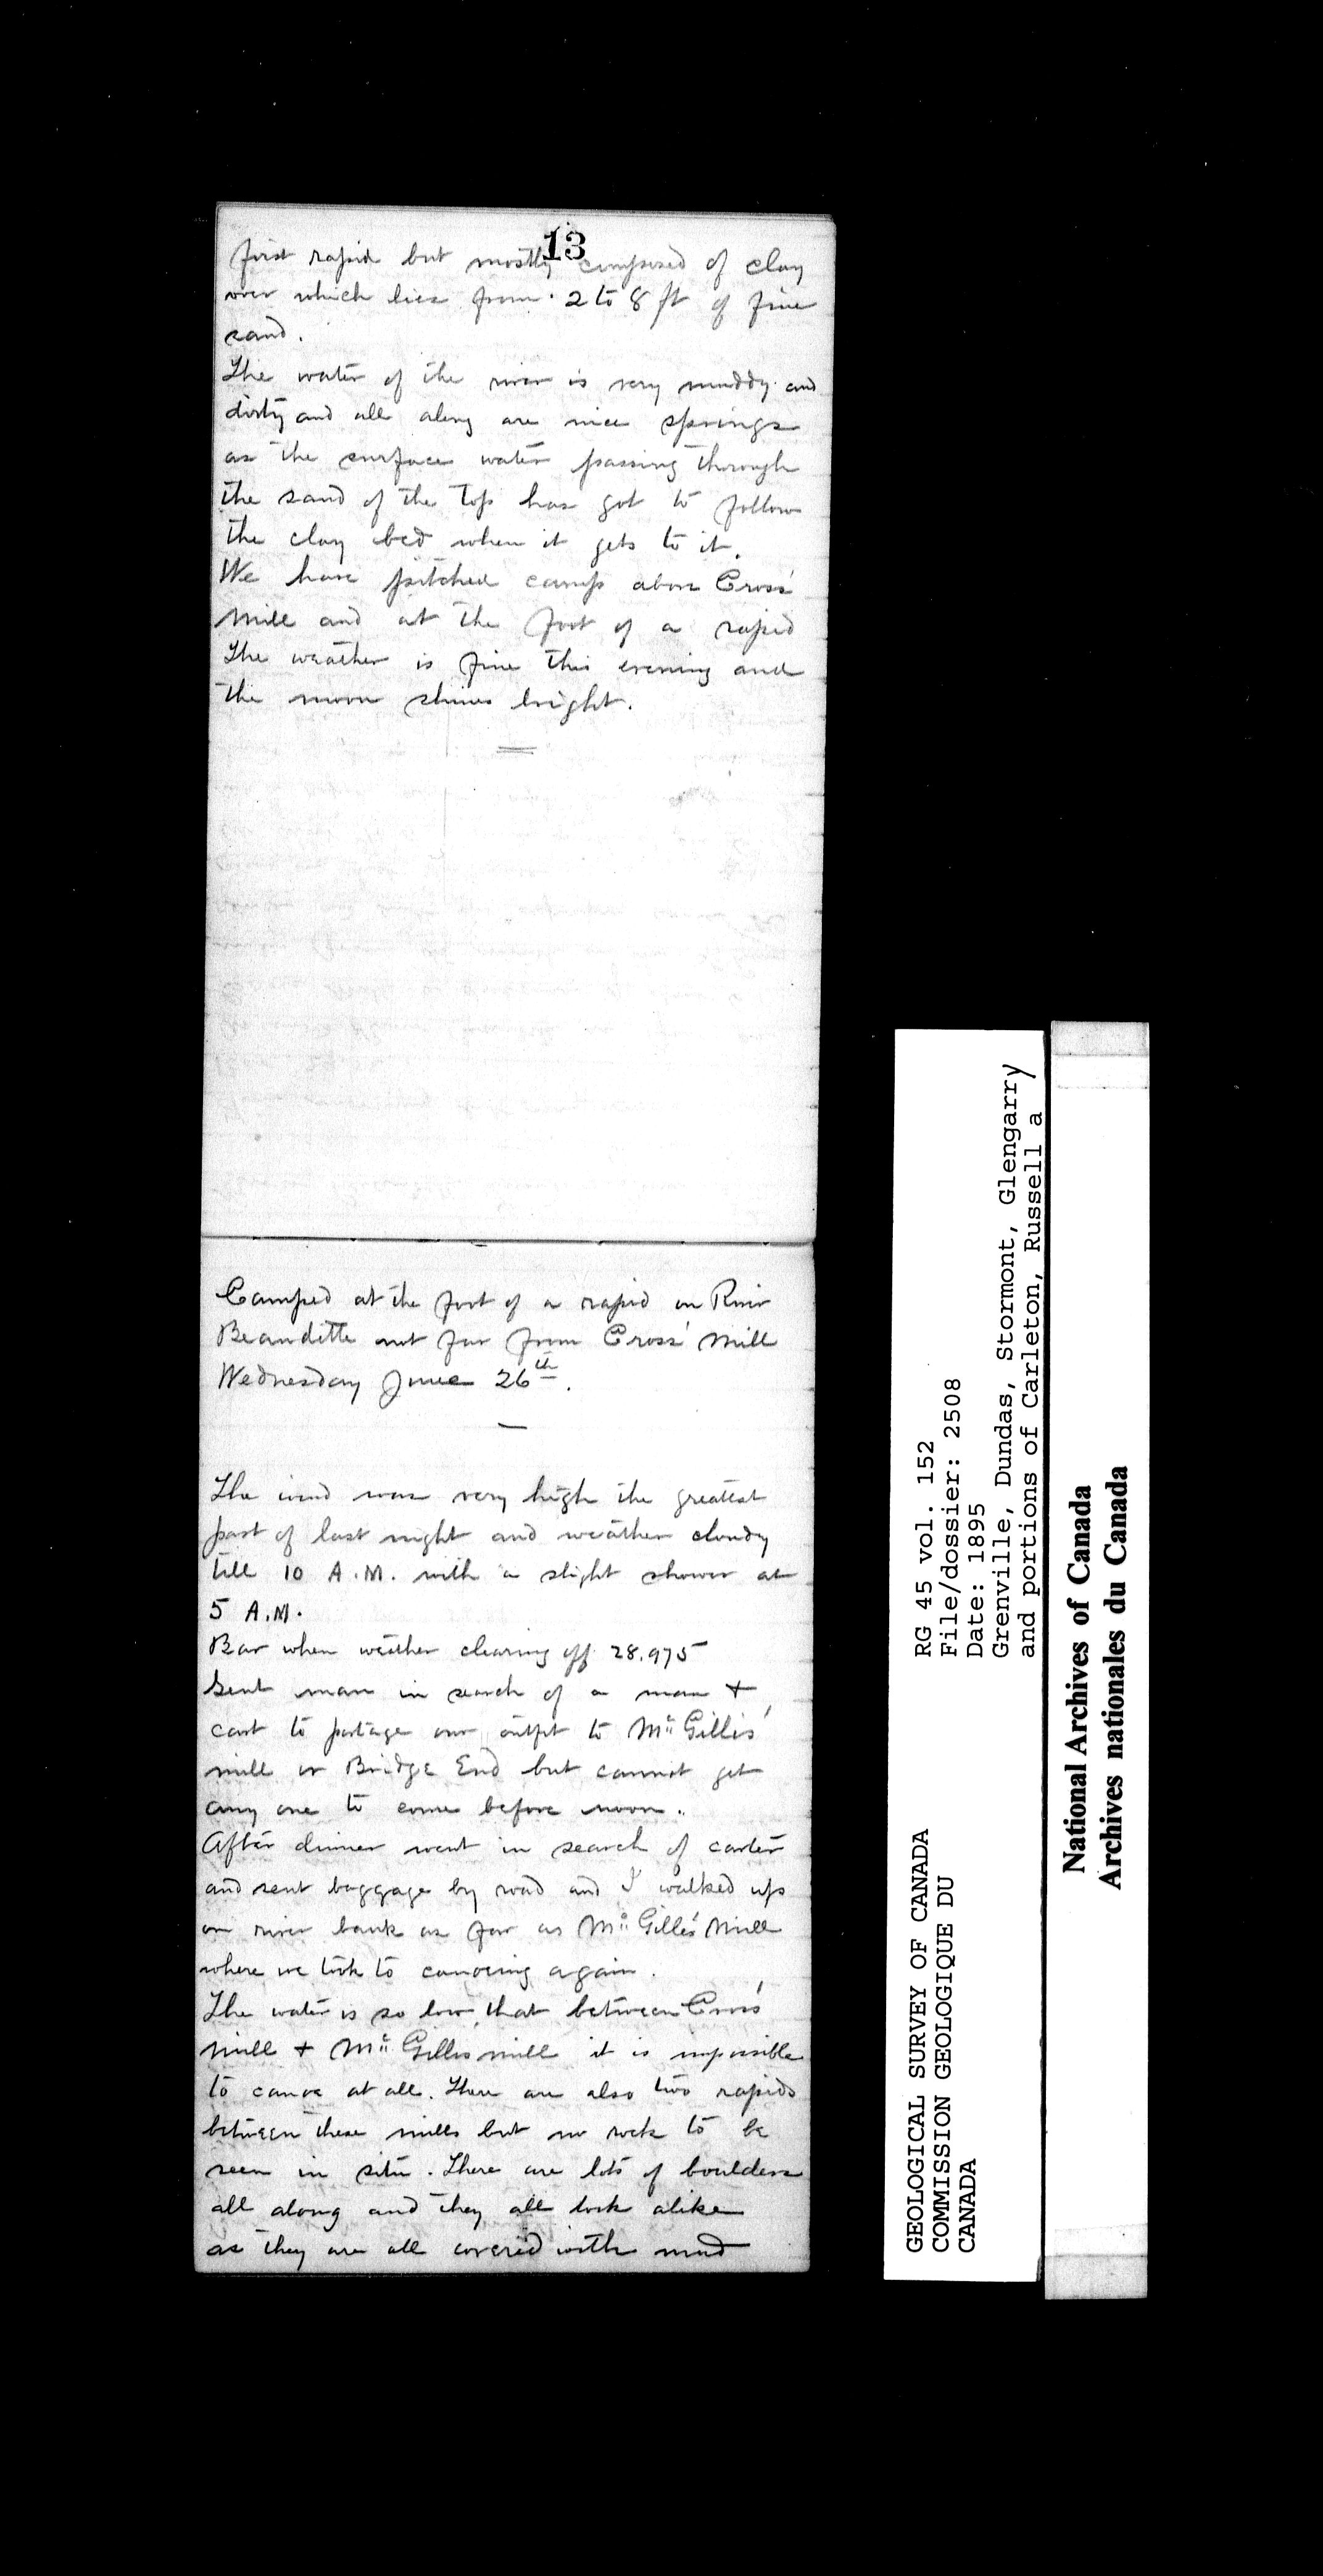 13
first rapid but mostly composed of clay
over which lies from 2 to 8 ft of fine
sand.
The water of the river is very muddy and
dirty and all along are nice springs
as the surface water passing through
the sand of the top has got to follow
the clay bed when it gets to it.
We have pitched camp above Cross'
Mill and at the foot of a rapid
The weather is fine this evening and
the moon shines bright.
Camped at the foot of a rapid on River
Beaudette not far from Cross' Mill
Wednesday June 26th.
The wind was very high the greatest
part of last night and weather cloudy
till 10 A.M. with a slight shower at
5 A.M.
Bar when weather clearing off 28.975
Sent man in search of a man +
cart to portage our outfit to Mc Gillis'
mill or Bridge End but cannot get
any one to come before noon.
After dinner went in search of carter
and sent baggage by road and I walked up
on river bank as far as Mc Gillis' Mill
where we took to canoeing again.
The water is so low, that between Cross'
Mill + Mc Gillis mill it is impossible
to canoe at all. There are also two rapids
between these mills but no rock to be
seen in situ. There are lots of boulders
all along and they all look alike
as they are all covered with mud
GEOLOGICAL SURVEY OF CANADA
COMMISSION GEOLOGIQUE DU
CANADA
RG 45 vol. 152
File/dossier: 2508
Date: 1895
Grenville, Dundas, Stormont, Glengarry
and portions of Carleton, Russell a
National Archives of Canada
Archives nationales du Canada